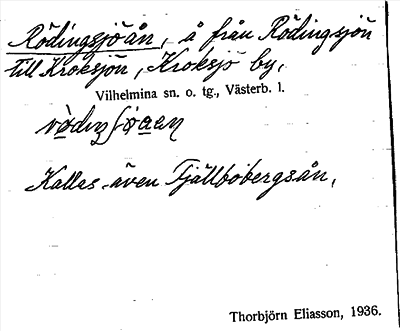 Rödingsjöån, å från Rödingsjön
till Kroksjön, Kroksjö by,
Vilhelmina sn. o. tg., Västerb. l.
Kallas även Fjällbobergsån,
Thorbjörn Eliasson, 1936.